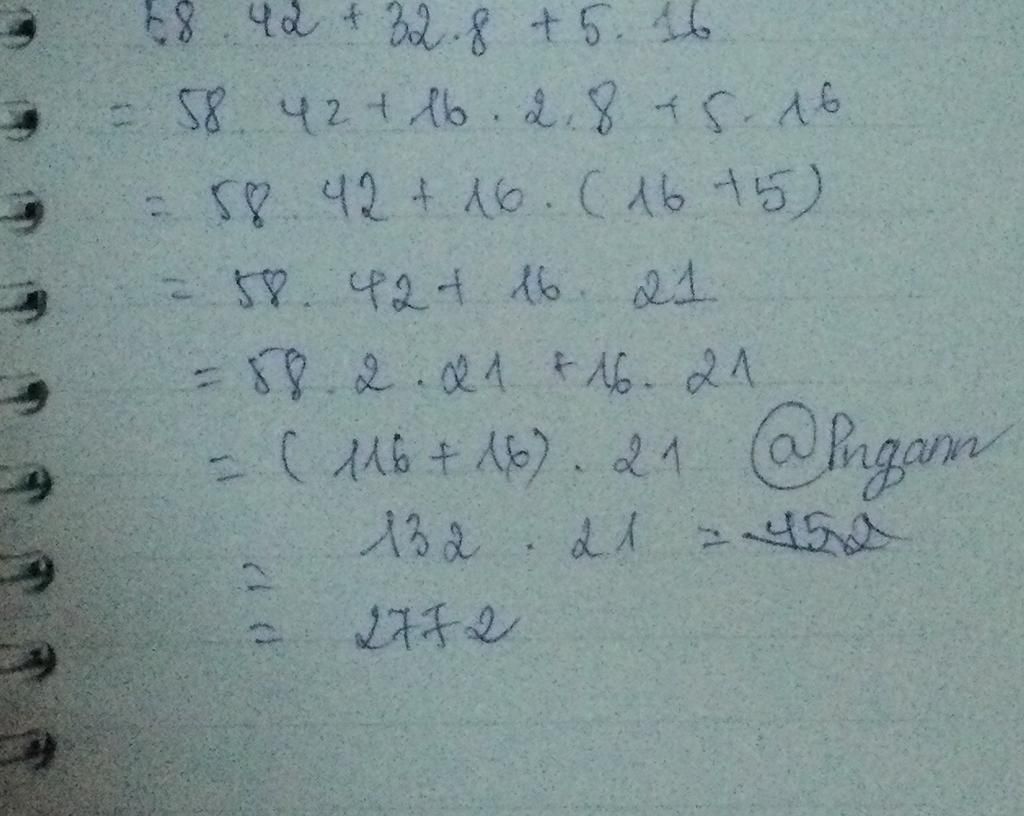 58 . 42 + 32 . 8 + 5 . 16
= 58 . 42 + 16 . 2 . 8 + 5 . 16
= 58 . 42 + 16 . ( 16 + 5 )
= 58 . 42 + 16 . 21
= 58 . 2 . 21 + 16 . 21
= ( 116 + 16 ) . 21 @Pngann
= 132 . 21 = 452
= 2772